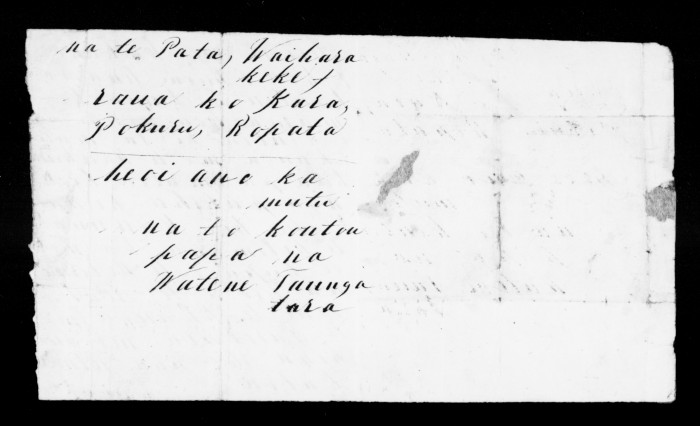 na te Pata, Waihara
keke,
raua ko Kara,
Pokuru, Ropata
heoi ano ka
mutu
na to koutou
papa na
Watene Taunga
tara